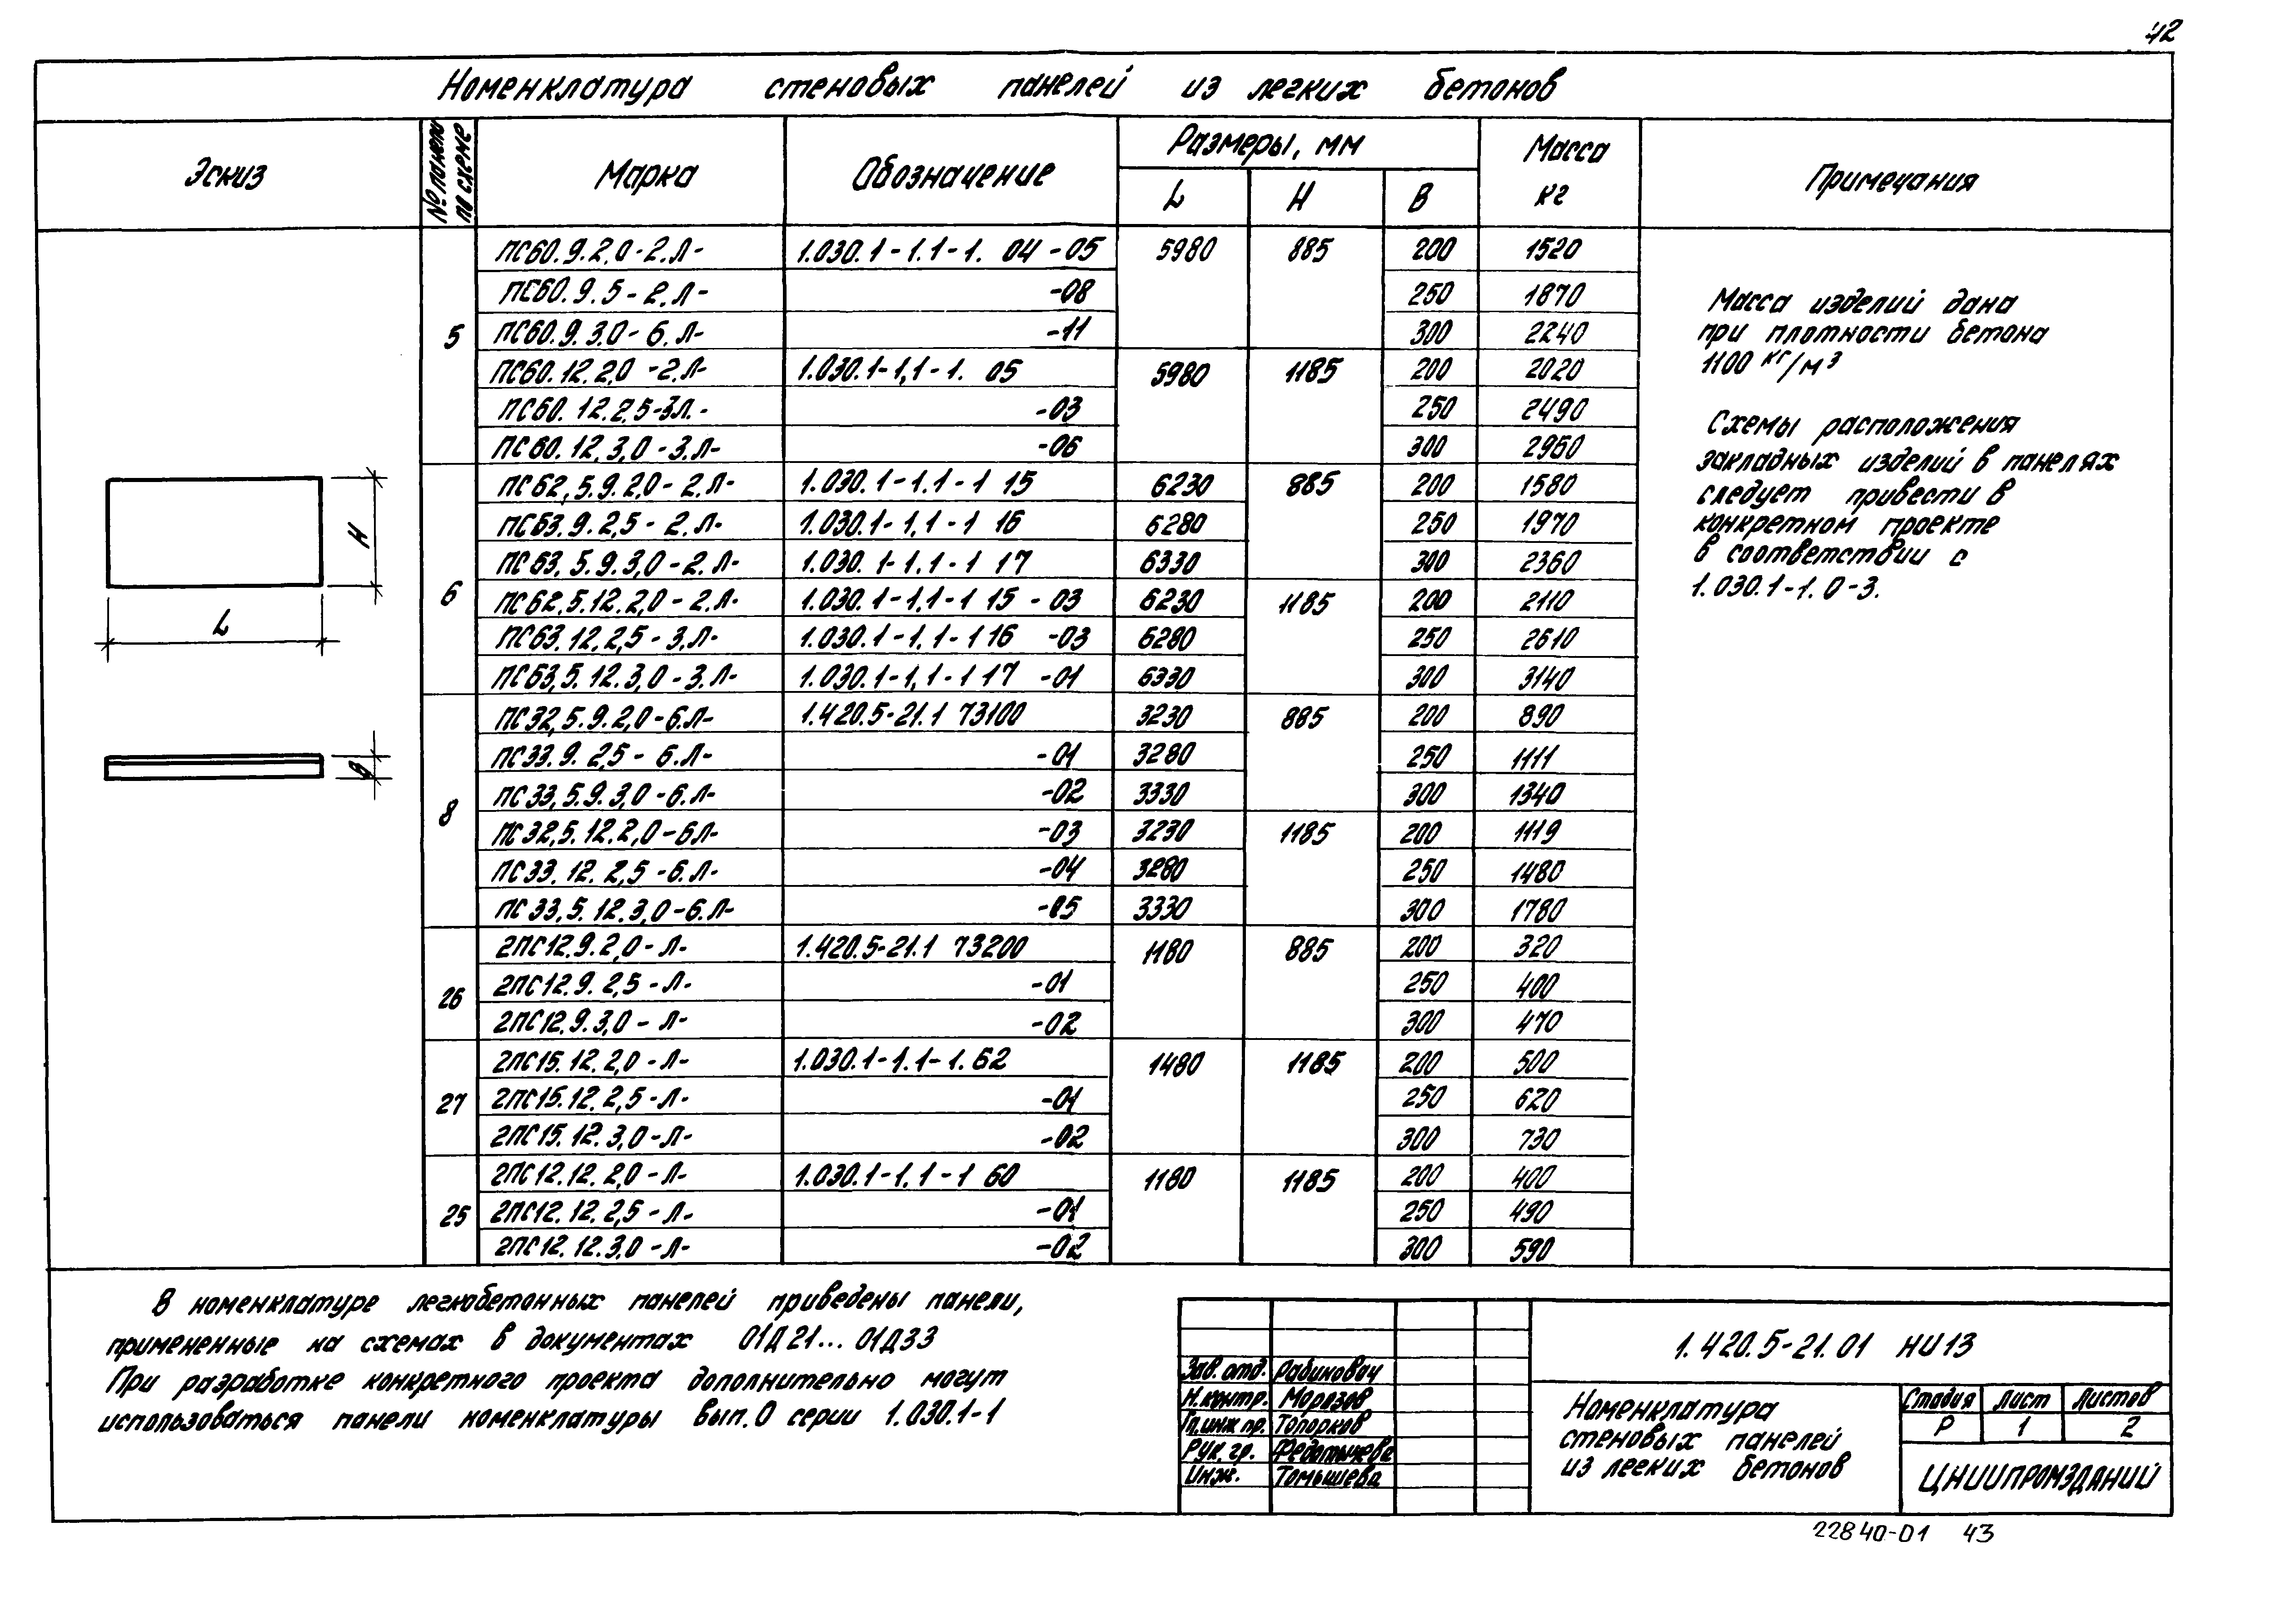 42
Номенклатура стеновых панелей из легких бетонов
Эскиз № панели по схеме Марка Обозначение Размеры, мм Масса кг Примечания
L H B
ПС60.9.2,0-2.Л- 1.030.1-1.1-1. 04 -05 5980 885 200 1520
ПС60.9.5-2.Л- -08 250 1870
5 ПС60.9.3,0-6.Л- -11 300 2240
ПС60.12.2,0-2.Л- 1.030.1-1,1-1. 05 5980 1185 200 2020
ПС60.12.2,5-3Л.- -03 250 2490
ПС60.12.3,0-3.Л- -06 300 2960
ПС62,5.9.2,0-2.Л- 1.030.1-1.1-1 15 6230 885 200 1580
ПС63.9.2,5-2.Л- 1.030.1-1,1-1 16 6280 250 1970
ПС63,5.9.3,0-2.Л- 1.030.1-1.1-1 17 6330 300 2360
6 ПС62,5.12.2,0-2.Л- 1.030.1-1,1-1 15 -03 6230 1185 200 2110
ПС63.12.2,5-3.Л- 1.030.1-1.1-1 16 -03 6280 250 2610
ПС63,5.12.3,0-3.Л- 1.030.1-1,1-1 17 -01 6330 300 3140
ПС32,5.9.2,0-6.Л- 1.420.5-21.1 73100 3230 885 200 890
ПС33.9.2,5-6.Л- -01 3280 250 1111
ПС33,5.9.3,0-6.Л- -02 3330 300 1340
8 ПС32,5.12.2,0-6Л- -03 3230 1185 200 1119
ПС33.12.2,5-6.Л- -04 3280 250 1480
ПС33,5.12.3,0-6.Л- -05 3330 300 1780
2ПС12.9.2,0-Л- 1.420.5-21.1 73200 1180 885 200 320
26 2ПС12.9.2,5-Л- -01 250 400
2ПС12.9.3,0-Л- -02 300 470
2ПС15.12.2,0-Л- 1.030.1-1.1-1.62 1480 1185 200 500
27 2ПС15.12.2,5-Л- -01 250 620
2ПС15.12.3,0-Л- -02 300 730
2ПС12.12.2,0-Л- 1.030.1-1.1-1 60 1180 1185 200 400
25 2ПС12.12.2,5-Л- -01 250 490
2ПС12.12.3,0-Л- -02 300 590
H
L
B
Масса изделий дана
при плотности бетона
1100 кг/м³
Схемы расположения
закладных изделий в панелях
следует привести в
конкретном проекте
в соответствии с
1.030.1-1.0-3.
В номенклатуре легкобетонных панелей приведены панели,
примененные на схемах в документах 01Д21...01Д33
При разработке конкретного проекта дополнительно могут
использоваться панели номенклатуры вып.0 серии 1.030.1-1
Зав. отд. Рабинович
Н.контр. Морозов
Гл.инж пр. Топорков
Рук. гр.
Инж. Томышева
1.420.5-21.01 НИ13
Номенклатура
стеновых панелей
из легких бетонов
Стадия Лист Листов
Р 1 2
ЦНИИПРОМЗДАНИЙ
22840-01 43